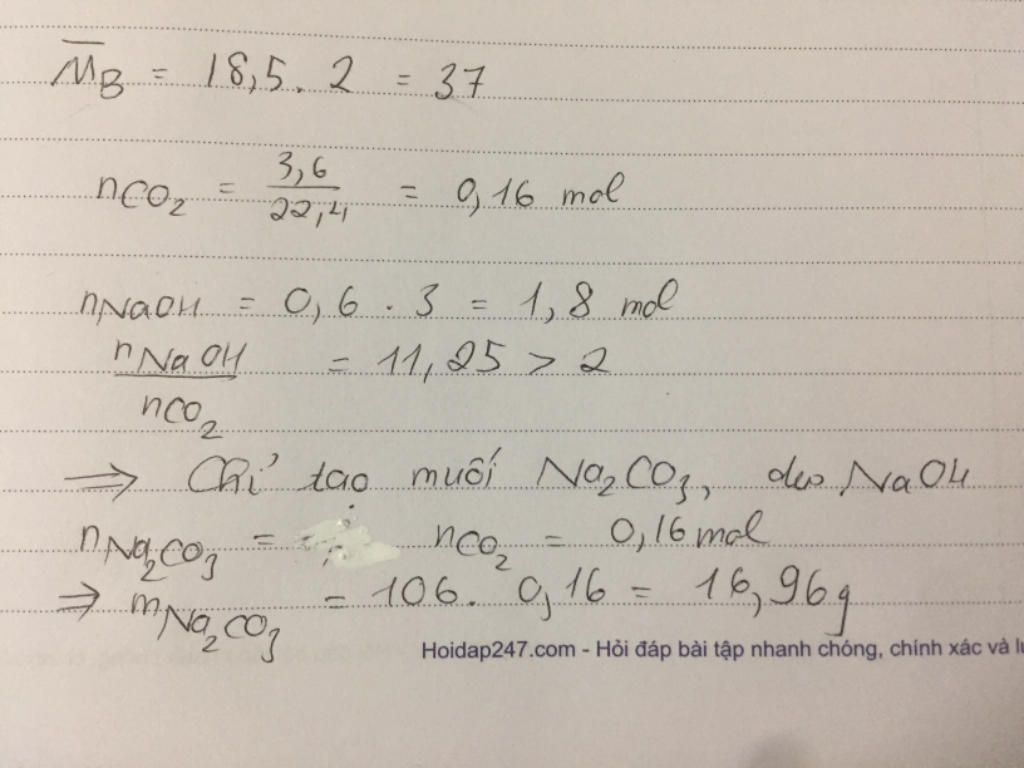 M̅B = 18,5 . 2 = 37
nCO2 = 3,6 / 22,4 = 0,16 mol
nNaOH = 0,6 . 3 = 1,8 mol
nNaOH / nCO2 = 11,25 > 2
⇒ Chỉ tạo muối Na2CO3, dư NaOH
nNa2CO3 = nCO2 = 0,16 mol
⇒ mNa2CO3 = 106. 0,16 = 16,96g
Hoidap247.com - Hỏi đáp bài tập nhanh chóng, chính xác và